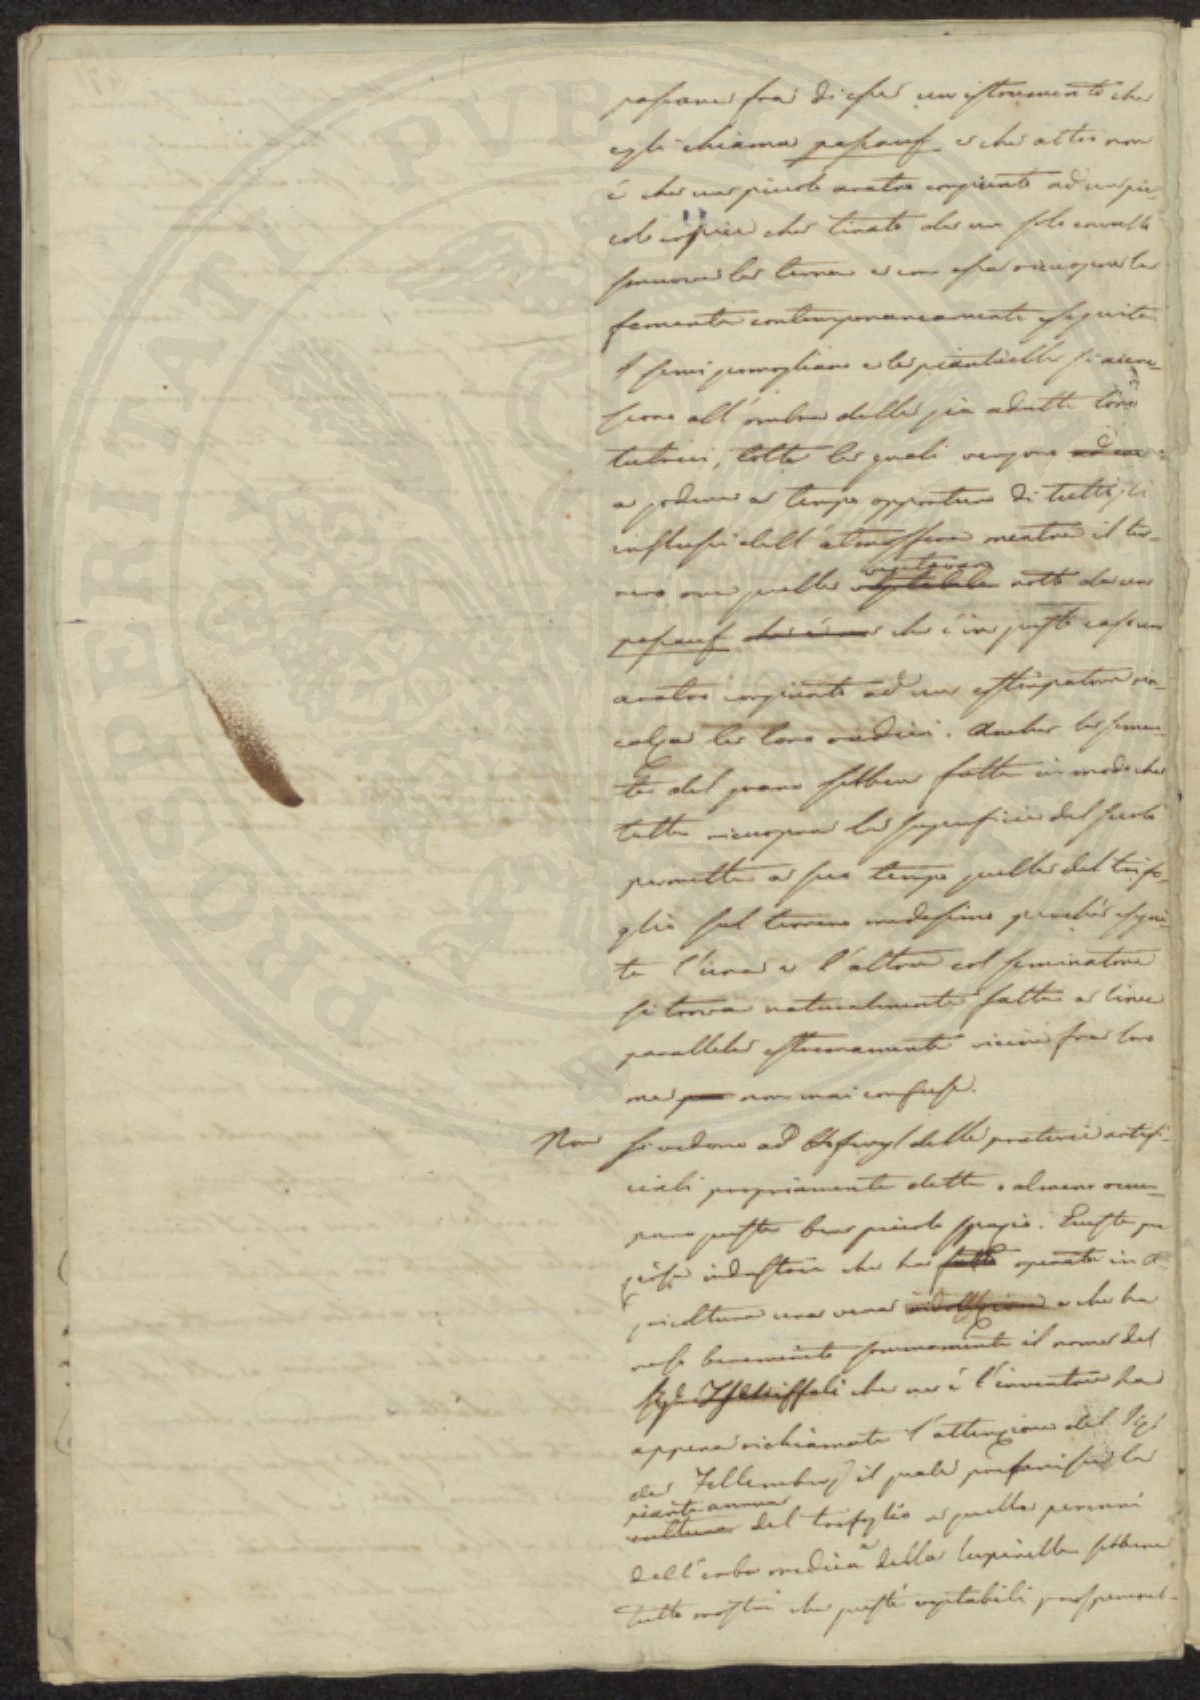 passare fra di esse un istrumento che
egli chiama passauf e che altro non
è che un piccolo aratro congiunto ad un pic-
colo erpice che tirato da un solo cavallo
smuove la terra e con essa ricuopre la
sementa contemporaneamente eseguita.
I semi germogliano e le pianticelle si accre-
scono all'ombra delle più adulte loro
tutrici, tolte le quali vengono ad esse
a godere a tempo opportuno di tutti gli
influssi dell'atmosfera mentre il ter-
reno ove quelle vegetavano
vegetabili rotto da un
passauf che è un che è in questo caso un
aratro congiunto ad un estirpatore rin-
calza le loro radici. Anche la semen-
ta del grano sebben fatta in modo che
tutta ricuopra la superficie del suolo
permette a suo tempo quella del trifo-
glio sul terreno medesimo perché esegui-
ta l'una e l'altra col seminatore
si trova naturalmente fatta a linee
parallele estremamente vicine fra loro
ma non mai confuse.
Non si vedono ad Hofwyl delle praterie artifi-
ciali propriamente dette, o almeno occu-
pano queste ben piccolo spazio. Questa pre-
ziosa industria che ha fatto operato in A-
gricoltura una vera rivoluzione e che ha
reso benemerito sommamente il nome del
Sig. Tschiffeli che ne è l'inventore ha
appena richiamato l'attenzione del Sig.
de Fellemberg il quale preferisce la
piante annue
cultura del trifoglio a quella perenni
dell'erba medica della lupinella sebbene
tutto mostri che questi vegetabili prospererebb-